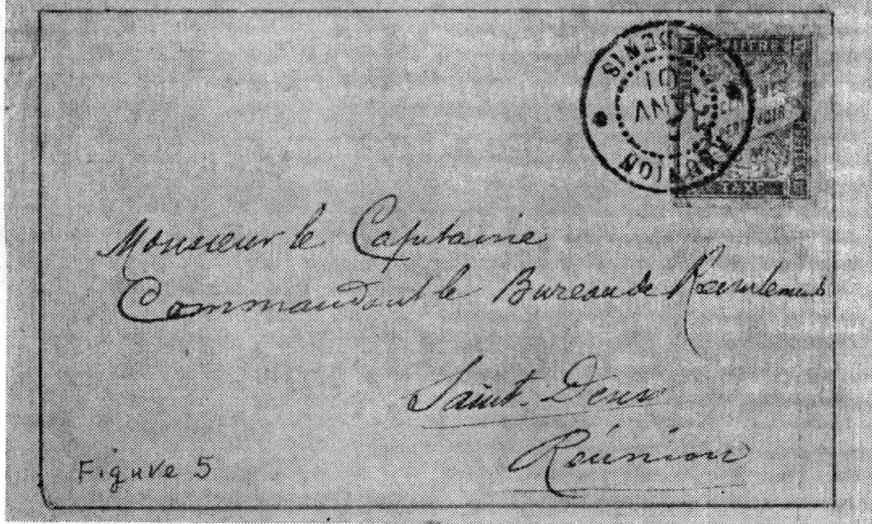 RÉUNION
DENIS
CHIFFRE
PERCEVOIR
TAXE
Monsieur le Capitaine
Commandant le Bureau de Recrutement
Saint-Denis
Réunion
Figure 5